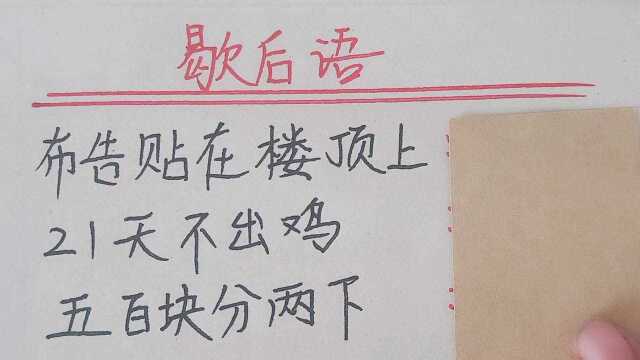 歇后语
布告贴在楼顶上
21天不出鸡
五百块分两下